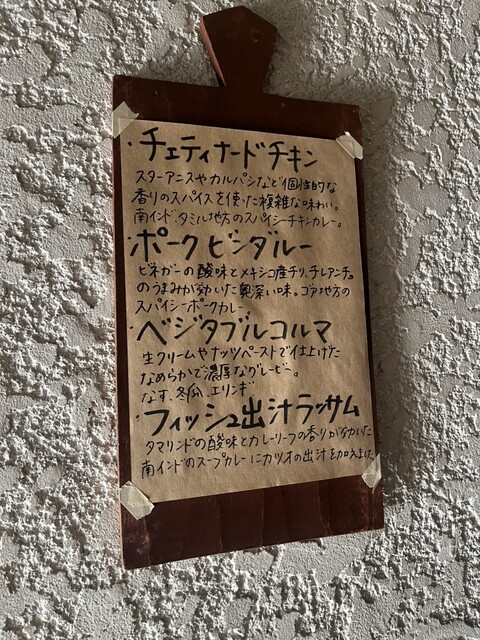 ・チェティナードチキン
スターアニスやカルパシなど個性的な
香りのスパイスを使った複雑な味わい。
南インド、タミル地方のスパイシーチキンカレー。
・ポークビンダルー
ビネガーの酸味とメキシコ産チリ、チレアンチョ
のうまみが効いた奥深い味。ゴア地方の
スパイシーポークカレー
・ベジタブルコルマ
生クリームやナッツペーストで仕上げた
なめらかで濃厚なグレービー。
なす、冬瓜、エリンギ
・フィッシュ出汁ラッサム
タマリンドの酸味とカレーリーフの香りが効いた
南インドのスープカレーにカツオの出汁を加えました